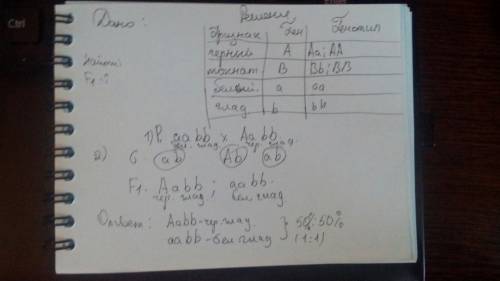 Ctrl
Дано: Решение
Признак Ген Генотип
черный A Aa; AA
мохнат B Bb; BB
белый. a aa
глад b bb
Найти:
F1-?
1) P. aabb x Aabb
бел. глад. чер. глад.
а) G ab Ab ab
F1. Aabb ; aabb.
чер. глад. бел глад
Ответ: Aabb-чер.глад.
aabb-бел глад } 50%:50%
(1:1)